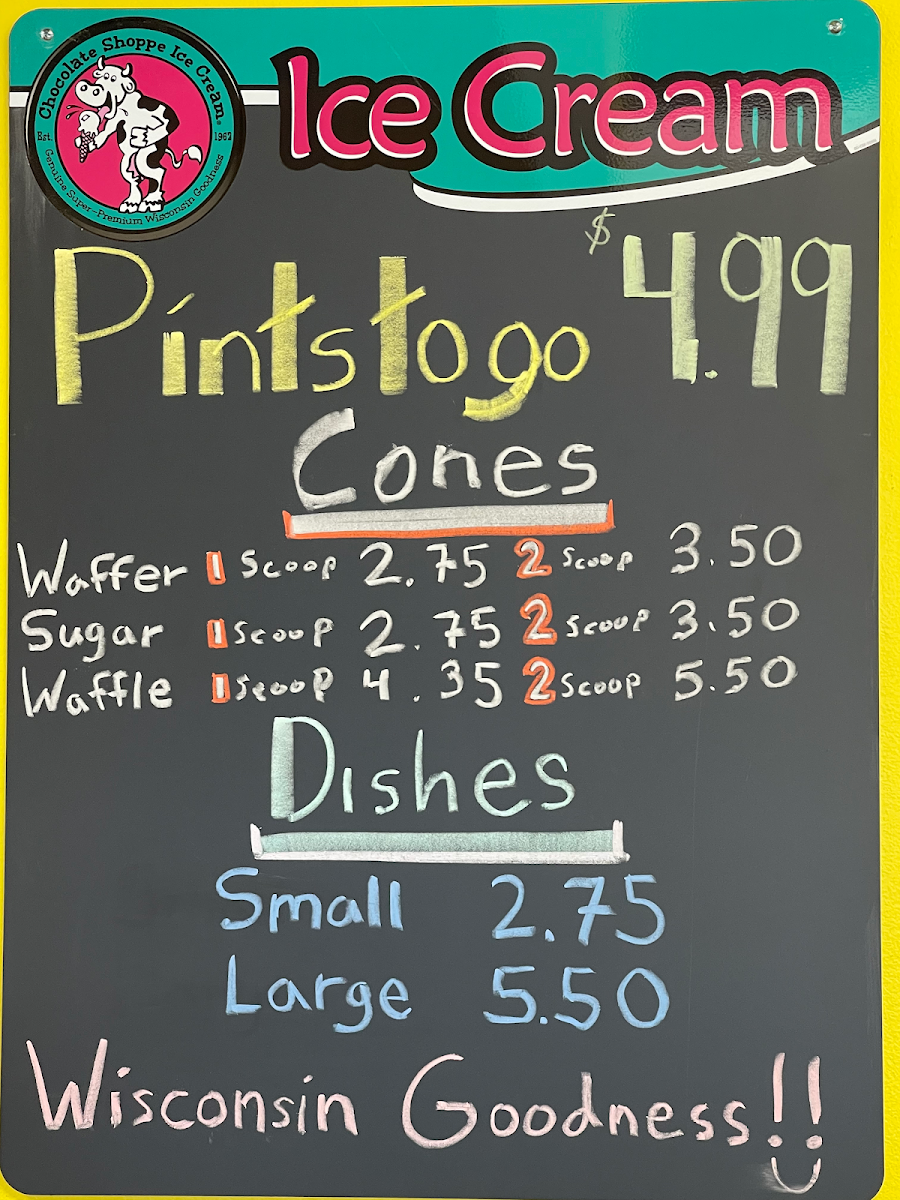 Chocolate Shoppe Ice Cream
Est. 1962
Genuine Super-Premium Wisconsin Goodness
Ice Cream
Pints to go $4.99
Cones
Waffer 1 Scoop 2.75 2 Scoop 3.50
Sugar 1 Scoop 2.75 2 Scoop 3.50
Waffle 1 Scoop 4.35 2 Scoop 5.50
Dishes
Small 2.75
Large 5.50
Wisconsin Goodness!!